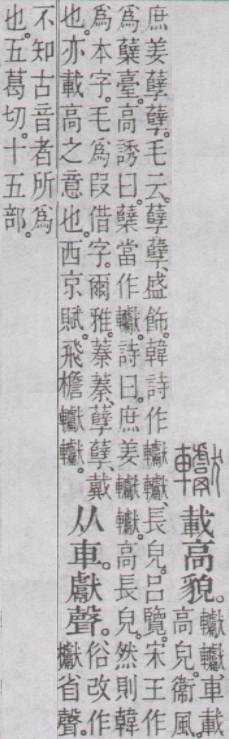 䡾
載高貌。
䡾䡾、車載
高皃。衞風。
庶姜孽孽。毛云。孽孽、盛飾。韓詩作䡾䡾。長皃。呂覽。宋王作
爲櫱臺。高誘曰。櫱當作䡾。詩曰。庶姜䡾䡾。高長皃。然則韓
爲本字。毛爲叚借字。爾雅。蓁蓁、孽孽、戴
也。亦載高之意也。西京賦。飛檐䡾䡾。
从車。獻聲。
俗改作
省聲。
不知古音者所爲
也。五葛切。十五部。